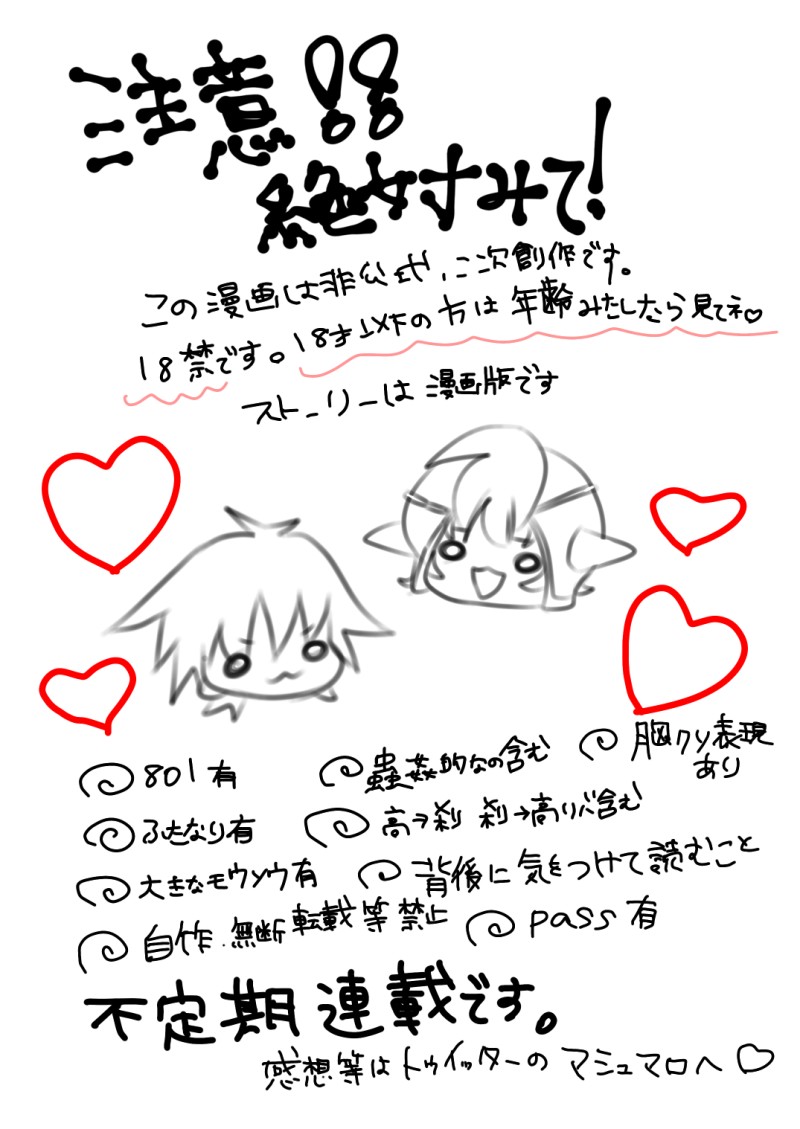 注意!!
絶対みて!
この漫画は非公式、二次創作です。
18禁です。18才以下の方は年齢みたしたら見てネ♡
ストーリーは漫画版です
801有
蟲姦的なの含む
胸クソ表現あり
ふたなり有
高→刹 刹→高リバ含む
大きなモウソウ有
背後に気をつけて読むこと
自作.無断転載等禁止
pass有
不定期連載です。
感想等はトゥイッターのマシュマロへ♡